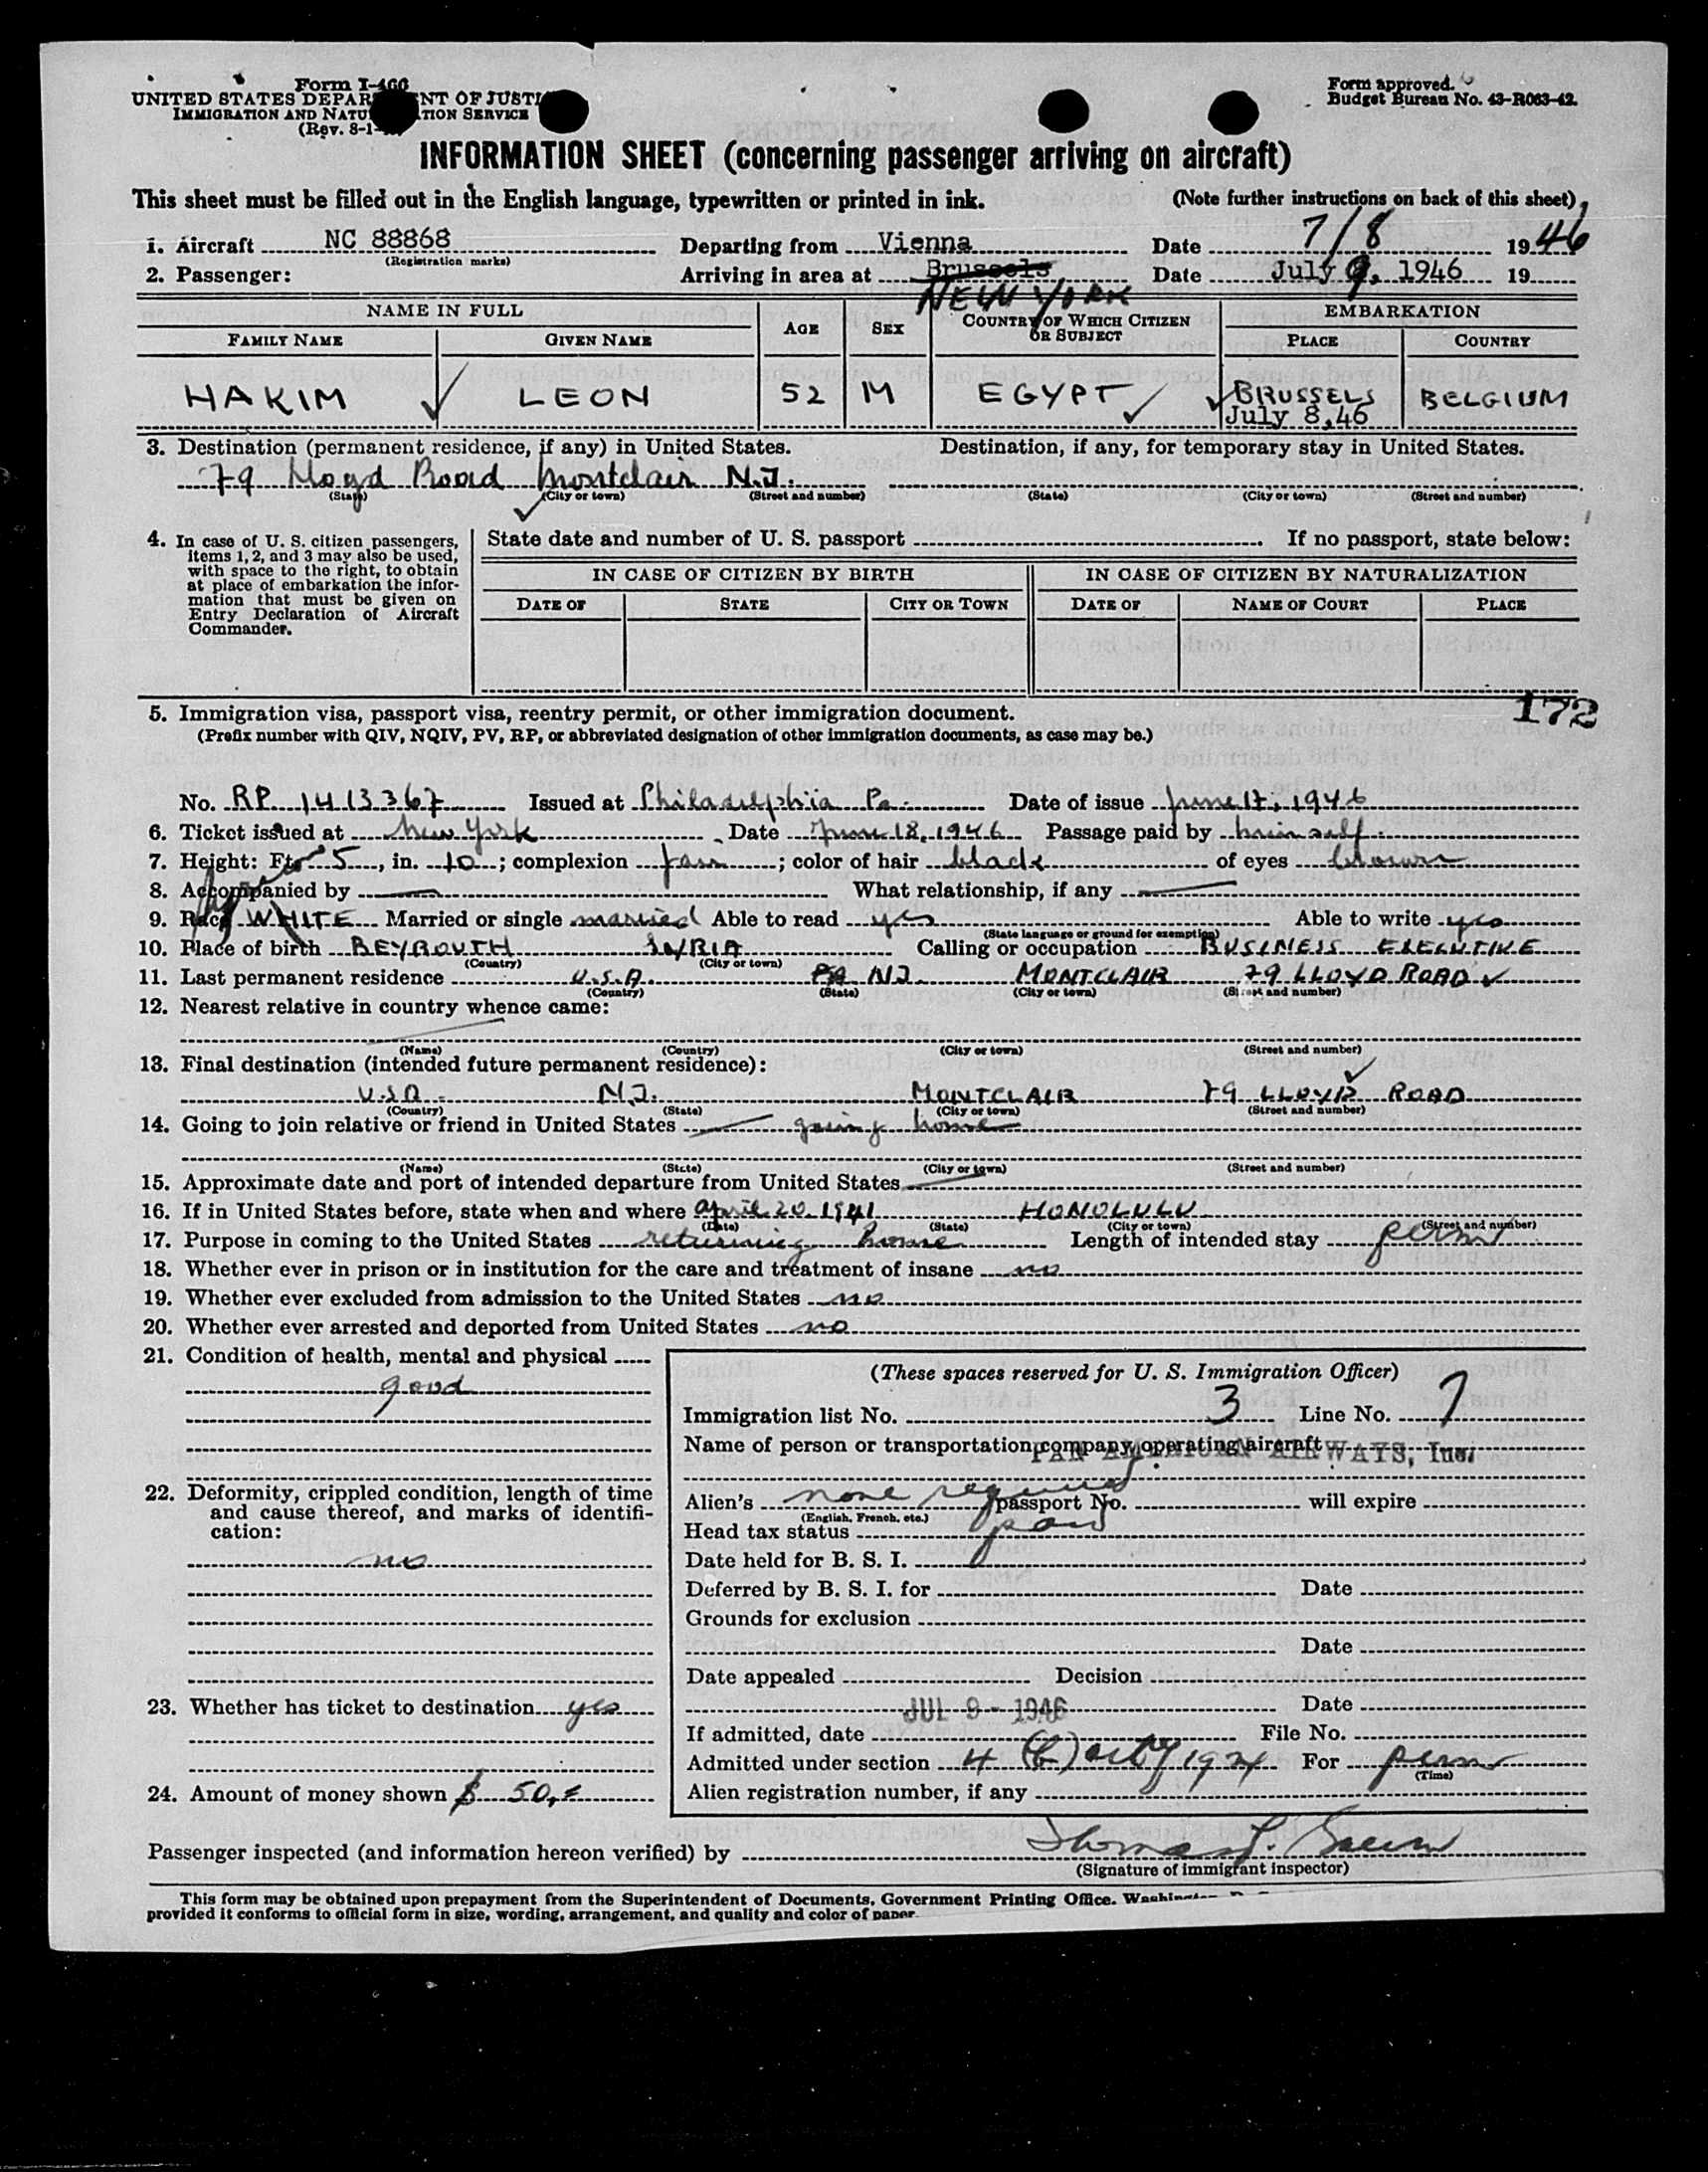 Form I-466
UNITED STATES DEPAR NT OF JUSTI
IMMIGRATION AND NATU TION SERVICE
(Rev. 8-1-
Form approved.
Budget Bureau No. 43-R063-42.
INFORMATION SHEET (concerning passenger arriving on aircraft)
This sheet must be filled out in the English language, typewritten or printed in ink. (Note further instructions on back of this sheet)
1. Aircraft NC 88868 Departing from Vienna Date 7/8 1946
(Registration marks)
2. Passenger: Arriving in area at Brussels Date July 9, 1946 19
NEW YORK
NAME IN FULL AGE SEX COUNTRY OF WHICH CITIZEN OR SUBJECT EMBARKATION
FAMILY NAME GIVEN NAME PLACE COUNTRY
HAKIM LEON 52 M EGYPT BRUSSELS BELGIUM
July 8, 46
3. Destination (permanent residence, if any) in United States. Destination, if any, for temporary stay in United States.
79 Lloyd Road Montclair N.J.
(State) (City or town) (Street and number) (State) (City or town) (Street and number)
4. In case of U. S. citizen passengers, items 1, 2, and 3 may also be used, with space to the right, to obtain at place of embarkation the information that must be given on Entry Declaration of Aircraft Commander.
State date and number of U. S. passport If no passport, state below:
IN CASE OF CITIZEN BY BIRTH IN CASE OF CITIZEN BY NATURALIZATION
DATE OF STATE CITY OR TOWN DATE OF NAME OF COURT PLACE
172
5. Immigration visa, passport visa, reentry permit, or other immigration document.
(Prefix number with QIV, NQIV, PV, RP, or abbreviated designation of other immigration documents, as case may be.)
No. RP 1413367 Issued at Philadelphia Pa. Date of issue June 17, 1946
6. Ticket issued at New York Date June 18, 1946 Passage paid by himself.
7. Height: Ft. 5, in. 10; complexion fair; color of hair black of eyes brown
8. Accompanied by What relationship, if any
9. Race WHITE Married or single married Able to read yes Able to write yes
(State language or ground for exemption)
10. Place of birth BEYROUTH SYRIA Calling or occupation BUSINESS EXECUTIVE
(Country) (City or town)
11. Last permanent residence U.S.A. PA NJ. MONTCLAIR 79 LLOYD ROAD
(Country) (State) (City or town) (Street and number)
12. Nearest relative in country whence came:
(Name) (Country) (City or town) (Street and number)
13. Final destination (intended future permanent residence):
U.S.A. N.J. MONTCLAIR 79 LLOYD ROAD
(Country) (State) (City or town) (Street and number)
14. Going to join relative or friend in United States going home
(Name) (State) (City or town) (Street and number)
15. Approximate date and port of intended departure from United States
16. If in United States before, state when and where April 20. 1941 HONOLULU
(Date) (State) (City or town) (Street and number)
17. Purpose in coming to the United States returning home Length of intended stay perm
18. Whether ever in prison or in institution for the care and treatment of insane no
19. Whether ever excluded from admission to the United States no
20. Whether ever arrested and deported from United States no
21. Condition of health, mental and physical
good
22. Deformity, crippled condition, length of time and cause thereof, and marks of identification:
no
23. Whether has ticket to destination yes
24. Amount of money shown $ 50.
(These spaces reserved for U. S. Immigration Officer)
Immigration list No. 3 Line No. 7
Name of person or transportation company operating aircraft PAN AMERICAN AIRWAYS, Inc.
Alien's none required passport No. will expire
(English, French, etc.)
Head tax status
Date held for B. S. I.
Deferred by B. S. I. for Date
Grounds for exclusion
Date
Date appealed Decision
JUL 9 - 1946 Date
If admitted, date File No.
Admitted under section 4 (b) act of 1924 For perm
(Time)
Alien registration number, if any
Passenger inspected (and information hereon verified) by
(Signature of immigrant inspector)
This form may be obtained upon prepayment from the Superintendent of Documents, Government Printing Office, Washington
provided it conforms to official form in size, wording, arrangement, and quality and color of paper